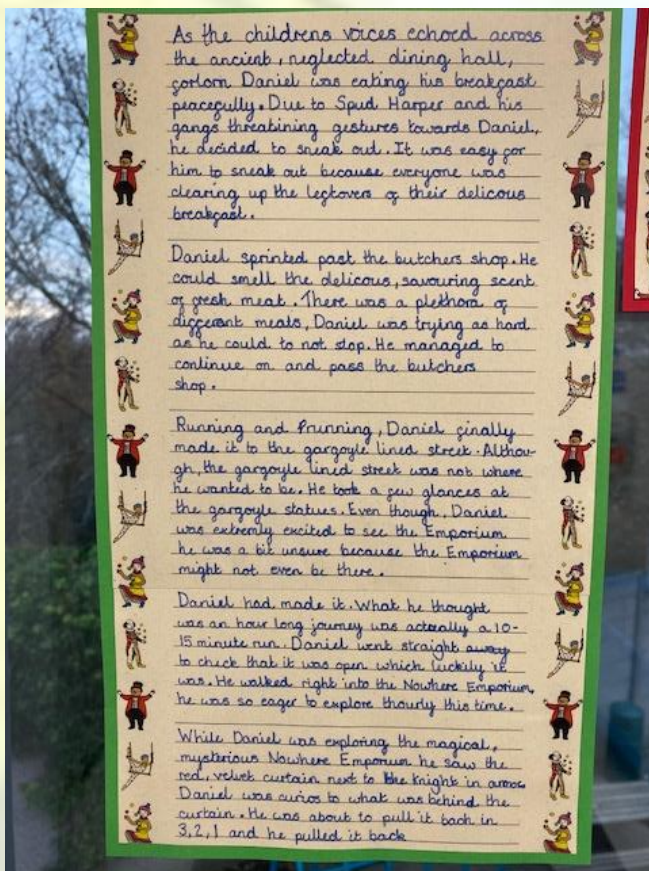 As the childrens voices echoed across
the ancient, neglected dining hall,
forlorn Daniel was eating his breakfast
peacefully. Due to Spud Harper and his
gangs threatining gestures towards Daniel,
he decided to sneak out. It was easy for
him to sneak out because everyone was
clearing up the leftovers of their delicous
breakfast.
Daniel sprinted past the butchers shop. He
could smell the delicous, savouring scent
of fresh meat. There was a plethora of
differant meats, Daniel was trying as hard
as he could to not stop. He managed to
continue on and pass the butchers
shop.
Running and running, Daniel finally
made it to the gargoyle lined street. Althou-
gh, the gargoyle lined street was not where
he wanted to be. He took a few glances at
the gargoyle statues. Even though, Daniel
was extremly excited to see the Emporium
he was a bit unsure because the Emporium
might not even be there.
Daniel had made it. What he thought
was an hour long journey was actually a 10-
15 minute run. Daniel went straight away
to check that it was open which luckily it
was. He walked right into the Nowhere Emporium,
he was so eager to explore thourly this time.
While Daniel was exploring the magical,
mysterious Nowhere Emporium he saw the
red, velvet curtain next to the knight in armor
Daniel was curios to what was behind the
curtain. He was about to pull it back in
3,2,1 and he pulled it back